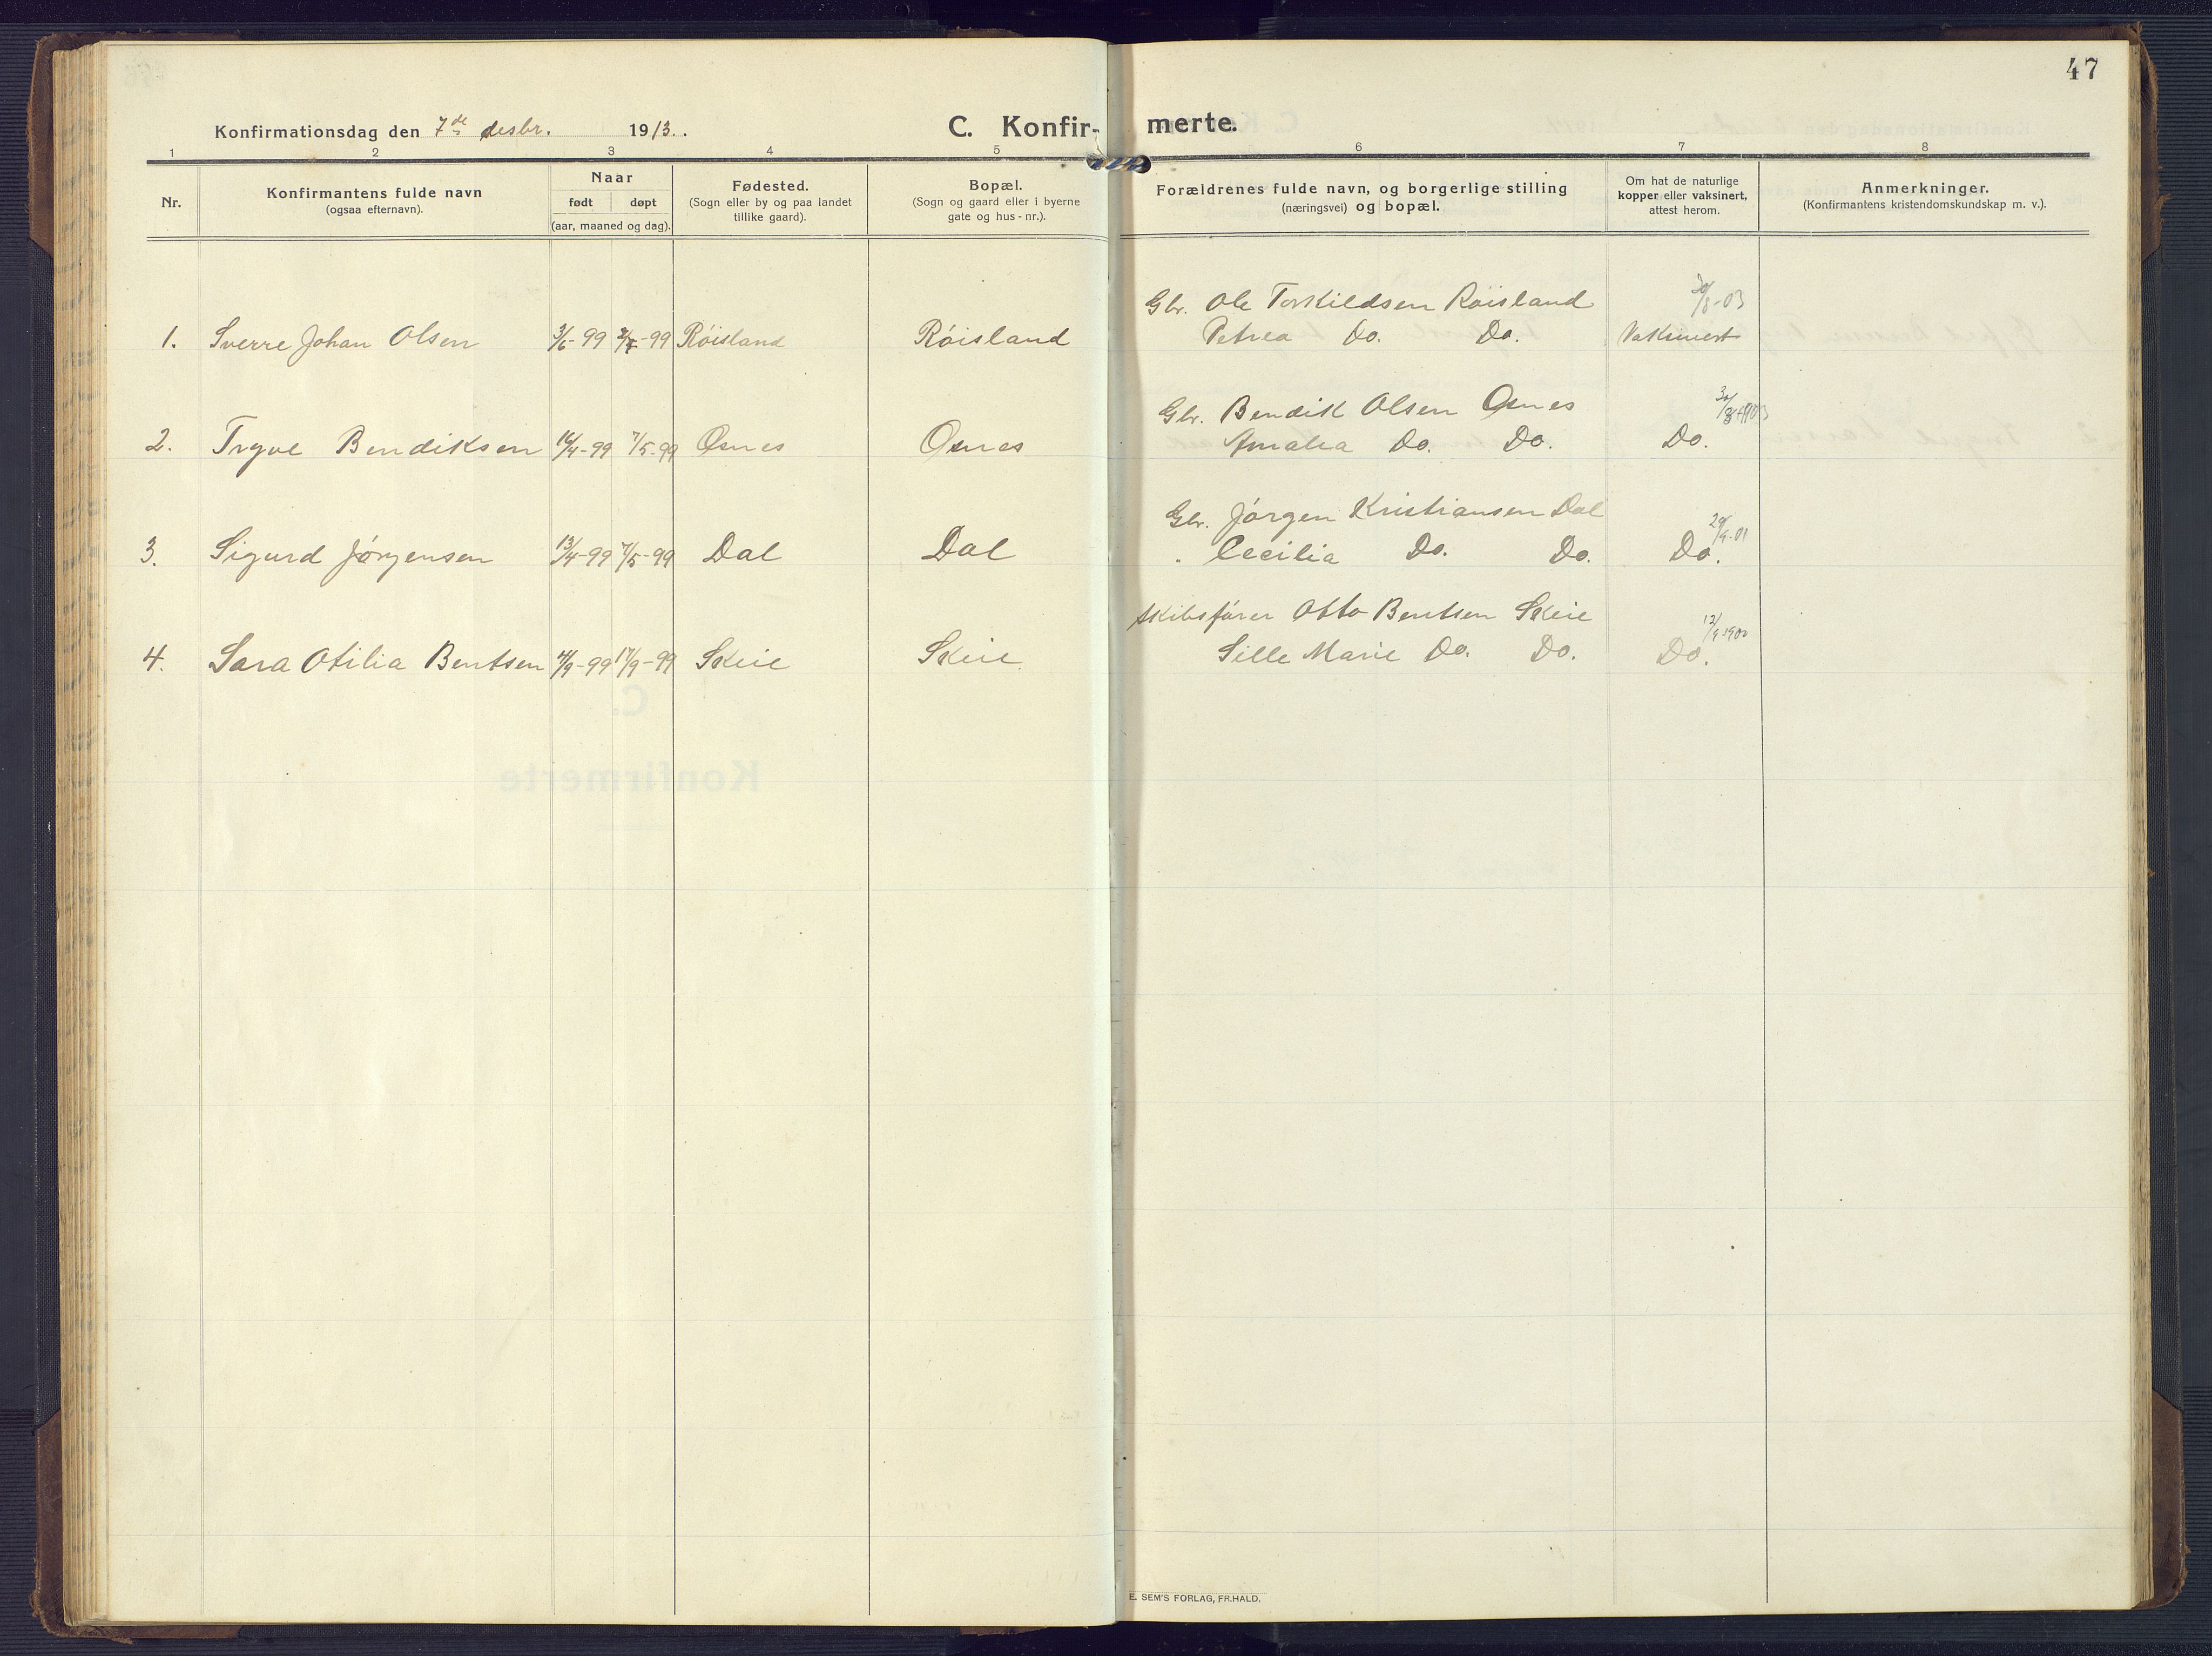 47
Konfirmationsdag den 7de desbr. 1913.
C. Konfir- merte.
1 2 3 4 5 6 7 8
Nr.
Konfirmantens fulde navn
(ogsaa efternavn).
Naar
født døpt
(aar, maaned og dag).
Fødested.
(Sogn eller by og paa landet
tillike gaard).
Bopæl.
(Sogn og gaard eller i byerne
gate og hus-nr.).
Forældrenes fulde navn, og borgerlige stilling
(næringsvei) og bopæl.
Om hat de naturlige
kopper eller vaksinert,
attest herom.
Anmerkninger.
(Konfirmantens kristendomskundskap m. v.).
Gbr. Ole Torkildsen Röisland
1. Sverre Johan Olsen 3/6-99 -99 Röisland Röisland Petrea Do. Do. Vaksinert
Gbr. Bendik Olsen Osnes
2. Trgve Bendiksen 16/4-99 7/5-99 Osnes Osnes Amalia Do. Do. Do.
Gbr. Jörgen Kristiansen Dal
3. Sigurd Jörgensen 13/4-99 7/5-99 Dal Dal Cecilia Do. Do. Do. 29/9-01
Skibsförer Otto Bentsen Skeie
4. Sara Otilia Bentsen 4/9-99 17/9-99 Skeie Skeie. Sille Marie Do. Do. Do. 12/9-1900
E. SEM'S FORLAG, FR.HALD.